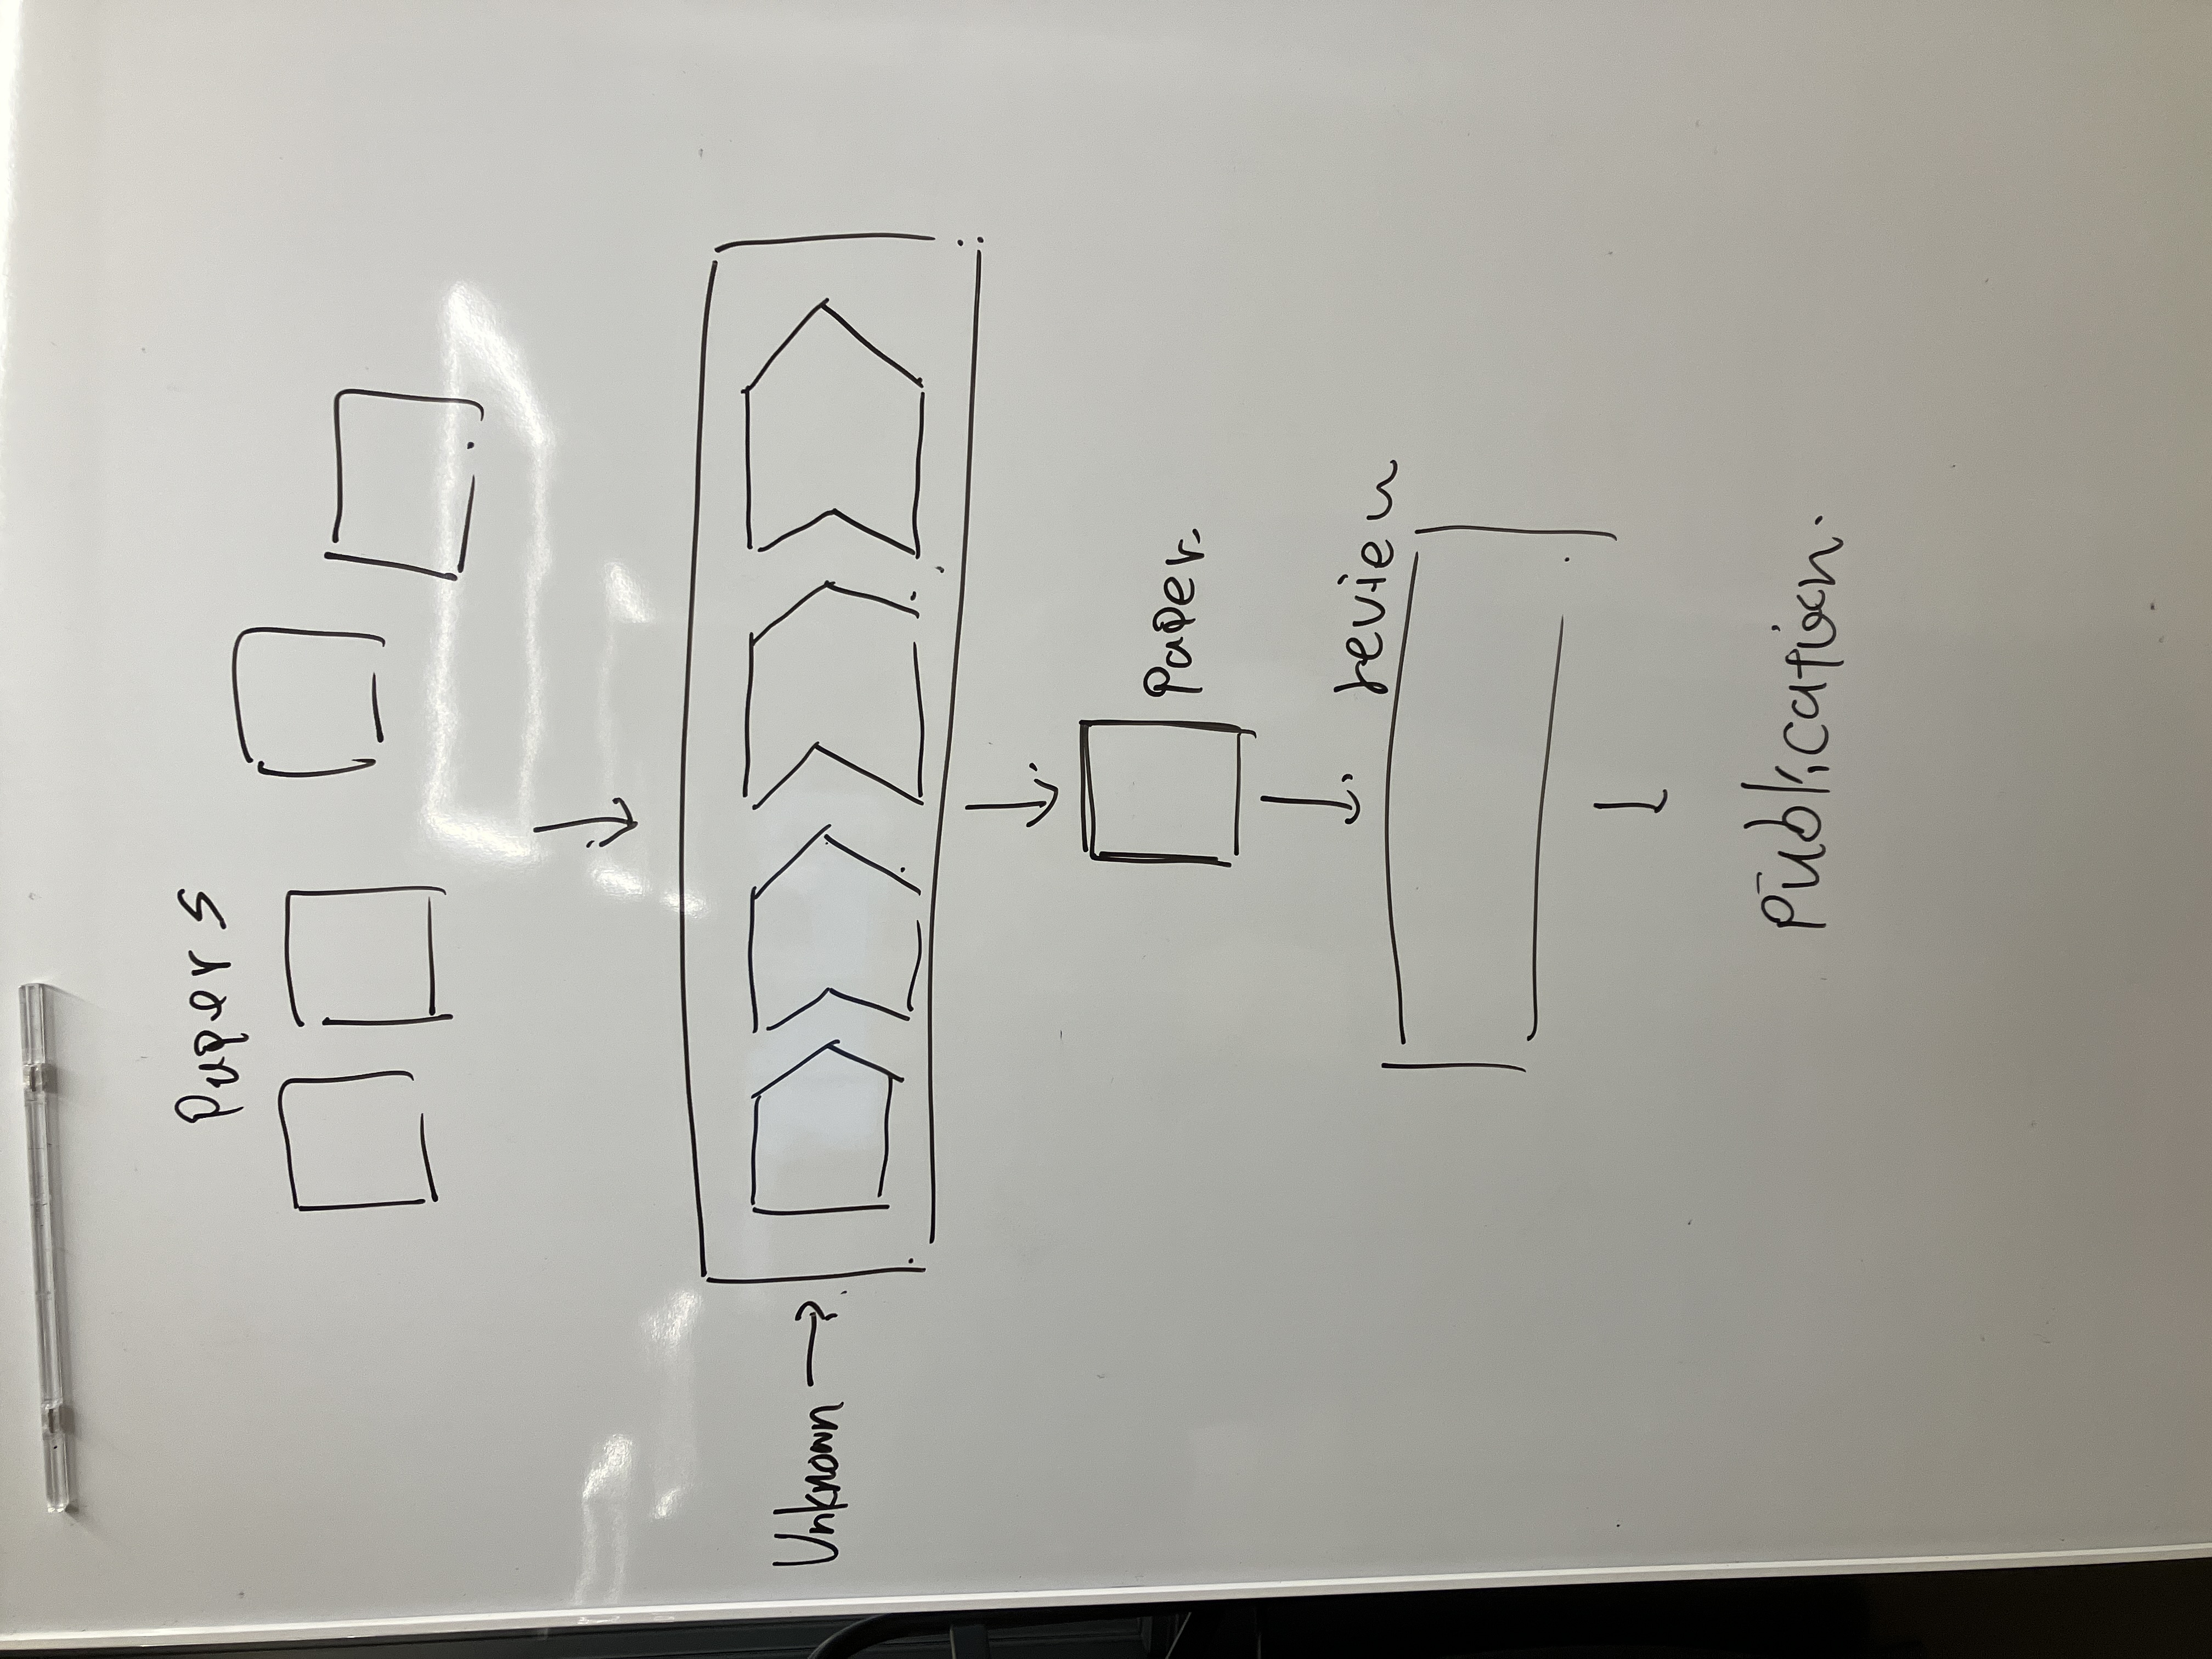 Papers
Unknown
Paper.
review
Publication.